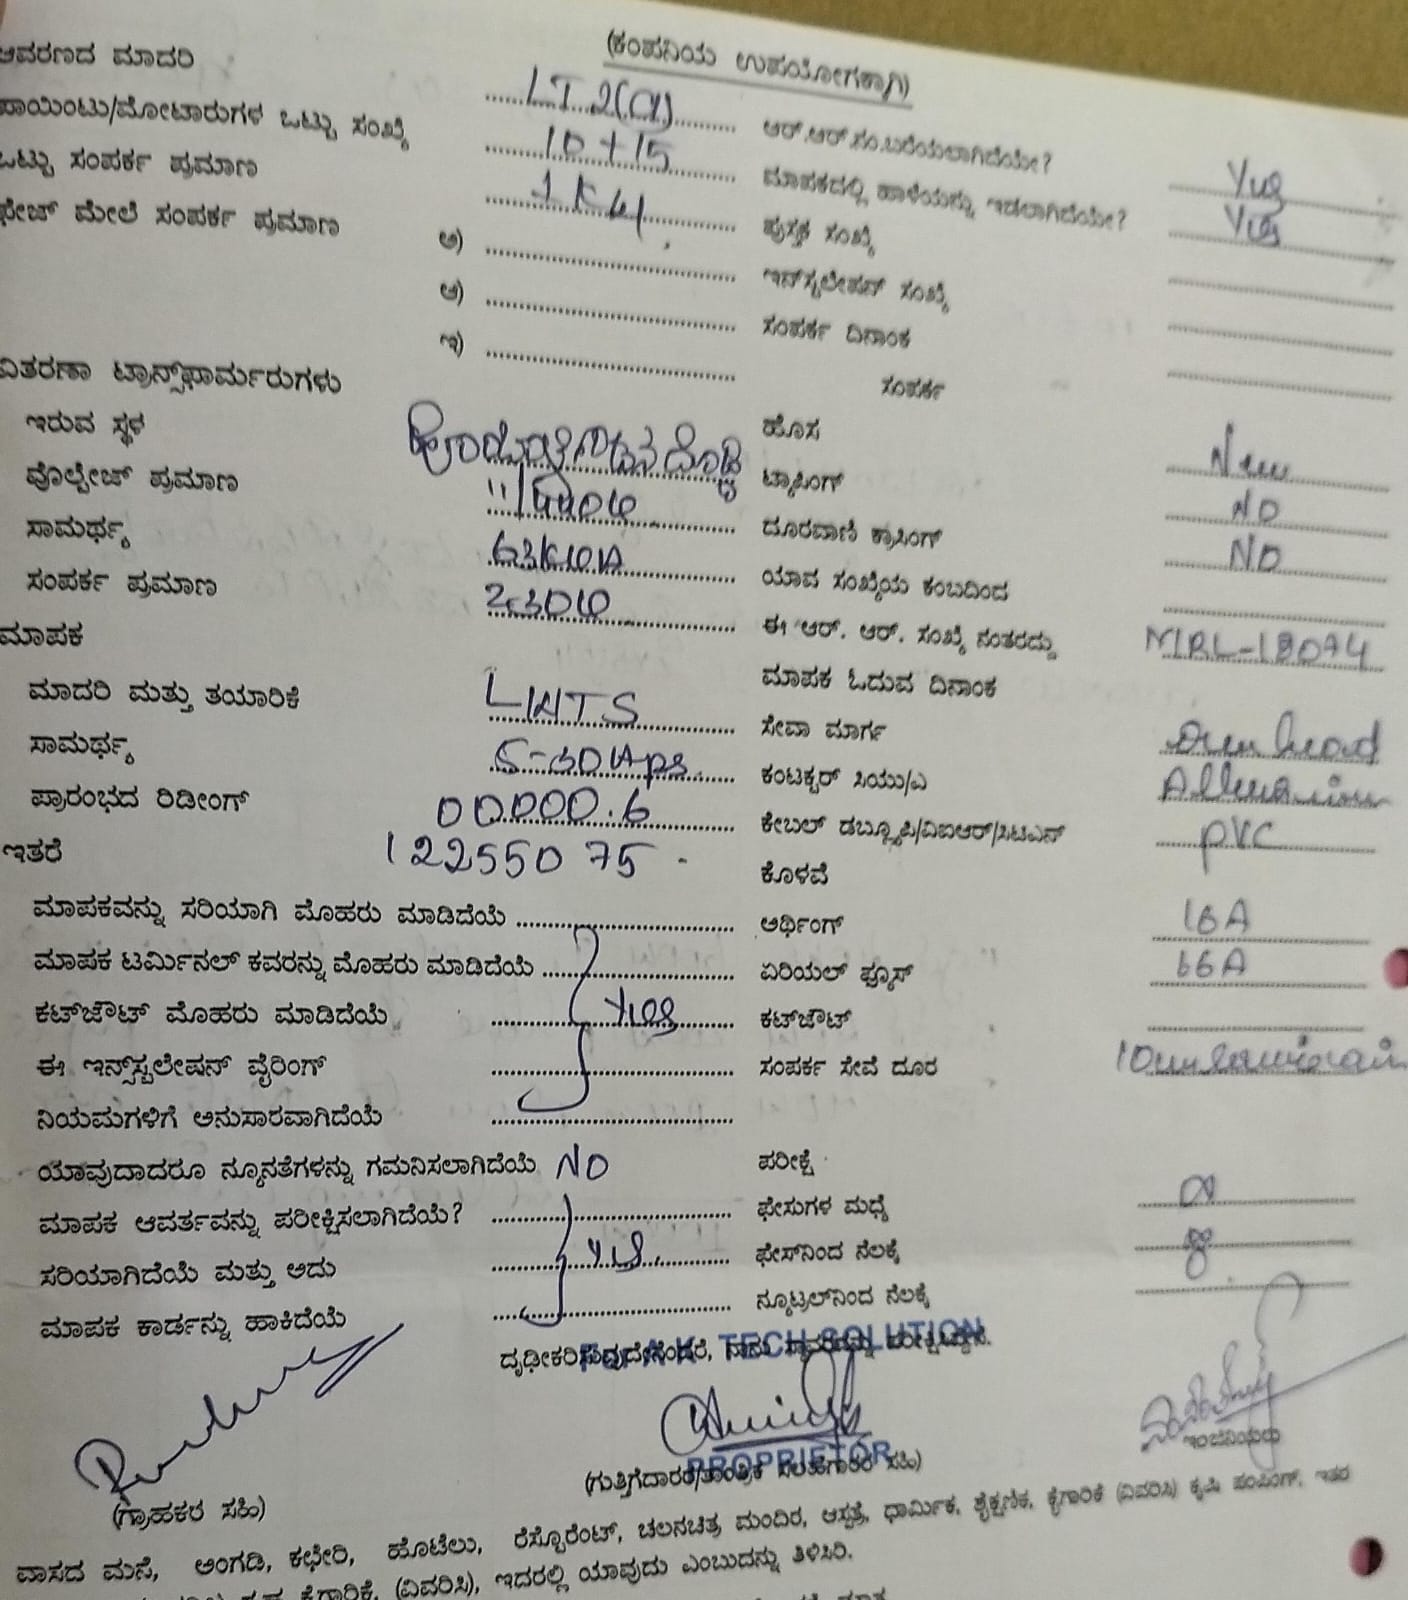 (ಕಂಪನಿಯ ಉಪಯೋಗಕ್ಕಾಗಿ)
ಆವರಣದ ಮಾದರಿ LT 2(a) ಆರ್.ಆರ್.ಸಂ.ಬರೆಯಲಾಗಿದೆಯೇ? Yes
ಪಾಯಿಂಟು/ಮೋಟಾರುಗಳ ಒಟ್ಟು ಸಂಖ್ಯೆ 10+15 ಮಾಪಕದಲ್ಲಿ ಹಾಳೆಯನ್ನು ಇಡಲಾಗಿದೆಯೇ? Yes
ಒಟ್ಟು ಸಂಪರ್ಕ ಪ್ರಮಾಣ 1 KW ಪುಸ್ತಕ ಸಂಖ್ಯೆ
ಫೇಜ್ ಮೇಲೆ ಸಂಪರ್ಕ ಪ್ರಮಾಣ ಅ) ಇನ್‌ಸ್ಟಲೇಷನ್ ಸಂಖ್ಯೆ
ಆ) ಸಂಪರ್ಕ ದಿನಾಂಕ
ಇ) ಸಂಪರ್ಕ
ವಿತರಣಾ ಟ್ರಾನ್ಸ್‌ಫಾರ್ಮರುಗಳು
ಇರುವ ಸ್ಥಳ ಹೊಸ New
ವೊಲ್ಟೇಜ್ ಪ್ರಮಾಣ ಟ್ಯಾಪಿಂಗ್ NO
ಸಾಮರ್ಥ್ಯ 63KVA ದೂರವಾಣಿ ಕ್ರಾಸಿಂಗ್ NO
ಸಂಪರ್ಕ ಪ್ರಮಾಣ 230V ಯಾವ ಸಂಖ್ಯೆಯ ಕಂಬದಿಂದ
ಮಾಪಕ ಈ ಆರ್. ಆರ್. ಸಂಖ್ಯೆ ನಂತರದ್ದು
ಮಾದರಿ ಮತ್ತು ತಯಾರಿಕೆ ಮಾಪಕ ಓದುವ ದಿನಾಂಕ
ಸಾಮರ್ಥ್ಯ 5-30Aps ಸೇವಾ ಮಾರ್ಗ Over head
ಪ್ರಾರಂಭದ ರಿಡೀಂಗ್ 00000.6 ಕಂಟಕ್ಟರ್ ಸಿಯು/ಎ
ಇತರೆ 12255075 ಕೇಬಲ್ ಡಬ್ಲ್ಯೂಪಿ/ವಿಐಆರ್/ಸಿಟಿಎಸ್ PVC
ಕೊಳವೆ
ಮಾಪಕವನ್ನು ಸರಿಯಾಗಿ ಮೊಹರು ಮಾಡಿದೆಯೆ ಅರ್ಥಿಂಗ್ 16A
ಮಾಪಕ ಟರ್ಮಿನಲ್ ಕವರನ್ನು ಮೊಹರು ಮಾಡಿದೆಯೆ ಏರಿಯಲ್ ಫ್ಯೂಸ್
ಕಟ್‌ಔಟ್ ಮೊಹರು ಮಾಡಿದೆಯೆ Yes ಕಟ್‌ಔಟ್
ಈ ಇನ್ಸ್‌ಸ್ಟಲೇಷನ್ ವೈರಿಂಗ್ ಸಂಪರ್ಕ ಸೇವೆ ದೂರ
ನಿಯಮಗಳಿಗೆ ಅನುಸಾರವಾಗಿದೆಯೆ
ಯಾವುದಾದರೂ ನ್ಯೂನತೆಗಳನ್ನು ಗಮನಿಸಲಾಗಿದೆಯೆ NO ಪರೀಕ್ಷೆ
ಮಾಪಕ ಆವರ್ತವನ್ನು ಪರೀಕ್ಷಿಸಲಾಗಿದೆಯೆ? ಫೇಸುಗಳ ಮಧ್ಯೆ
ಸರಿಯಾಗಿದೆಯೆ ಮತ್ತು ಅದು Yes ಫೇಸ್‌ನಿಂದ ನೆಲಕ್ಕೆ
ಮಾಪಕ ಕಾರ್ಡನ್ನು ಹಾಕಿದೆಯೆ ನ್ಯೂಟ್ರಲ್‌ನಿಂದ ನೆಲಕ್ಕೆ
TECH SOLUTION
PROPRIETOR
ಇಂಜಿನಿಯರು
(ಗ್ರಾಹಕರ ಸಹಿ)
ವಾಸದ ಮನೆ, ಅಂಗಡಿ, ಕಛೇರಿ, ಹೊಟೆಲು, ರೆಸ್ಟೊರೆಂಟ್, ಚಲನಚಿತ್ರ ಮಂದಿರ, ಆಸ್ಪತ್ರೆ, ಧಾರ್ಮಿಕ, ಶೈಕ್ಷಣಿಕ, ಕೈಗಾರಿಕೆ (ವಿವರಿಸಿ) ಕೃಷಿ ಪಂಪಿಂಗ್, ಇತರ
ಕೈಗಾರಿಕೆ, (ವಿವರಿಸಿ), ಇದರಲ್ಲಿ ಯಾವುದು ಎಂಬುದನ್ನು ತಿಳಿಸಿರಿ.